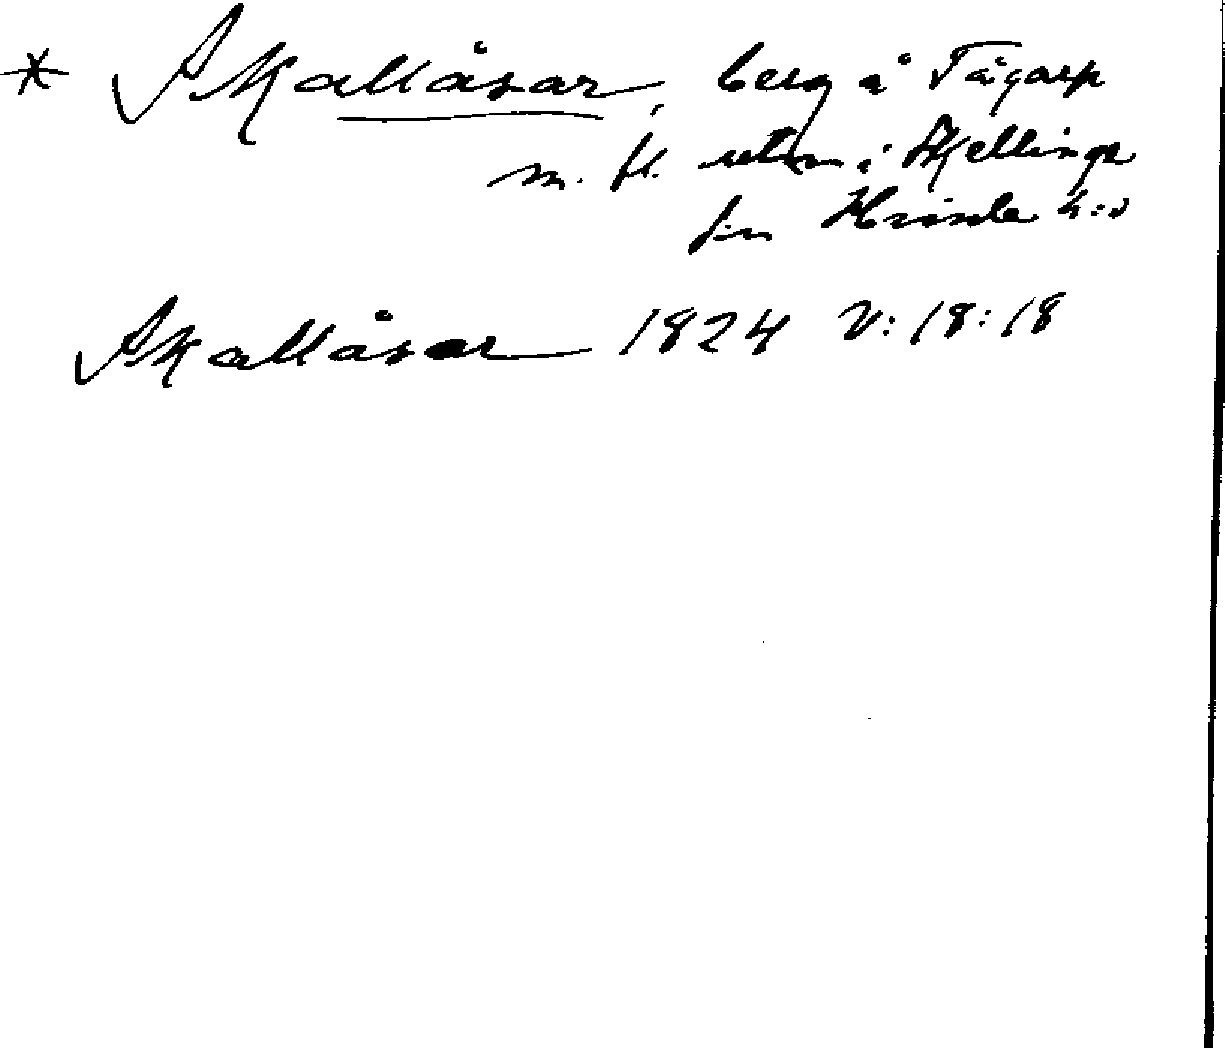 * Skallåsar, berg å Tågarp
m. fl. utm i Skjellinge
sn Himle h:d
Skallåsar 1824 V: 18: 18